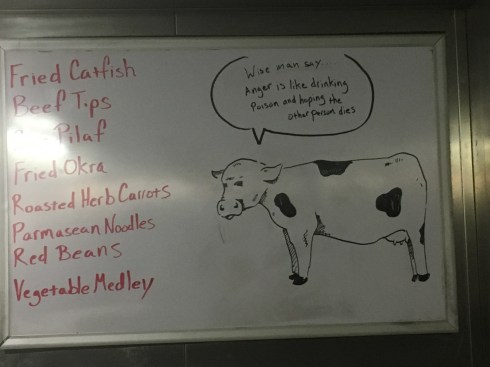 Fried Catfish
Beef Tips
Pilaf
Fried Okra
Roasted Herb Carrots
Parmasean Noodles
Red Beans
Vegetable Medley
Wise man say...
Anger is like drinking
Poison and hoping the
other person dies